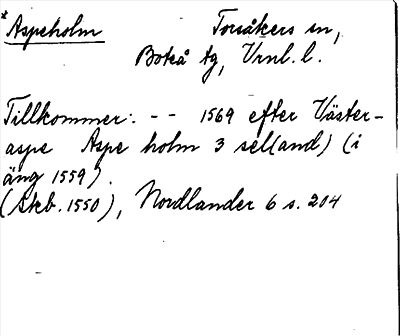 *Aspeholm Torsåkers sn,
Boteå tg, Vrnl. l.
Tillkommer: - - 1569 efter Väster-
aspe Aspe holm 3 sel(and) (i
äng 1559).
(Skb. 1550), Nordlander 6 s. 204